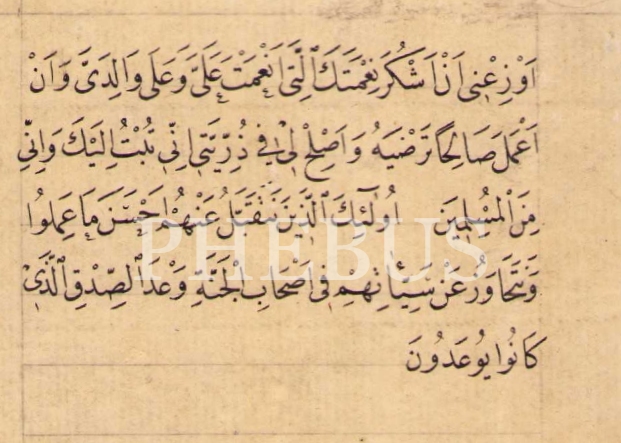 اَوْزِعْنِي اَنْ اَشْكُرَ نِعْمَتَكَ الَّتِي اَنْعَمْتَ عَلَيَّ وَعَلَى وَالِدَيَّ وَاَنْ
اَعْمَلَ صَالِحًا تَرْضَيهُ وَاَصْلِحْ لِي فِي ذُرِّيَّتِي اِنِّي تُبْتُ اِلَيْكَ وَاِنِّي
مِنَ الْمُسْلِمِينَ اُولٰٓئِكَ الَّذِينَ نَتَقَبَّلُ عَنْهُمْ اَحْسَنَ مَا عَمِلُوا
PHEBUS
وَنَتَجَاوَزُ عَنْ سَيِّاٰتِهِمْ فِي اَصْحَابِ الْجَنَّةِ وَعْدَ الصِّدْقِ الَّذِي
كَانُوا يُوعَدُونَ